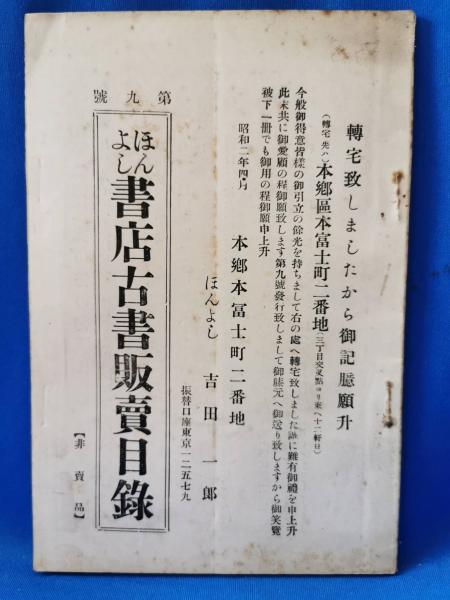 轉宅致しましたから御記臆願升
(轉宅先ハ)本鄕區本富士町二番地(三丁目交叉點ヨリ東ヘ十二軒目)
今般御得意皆樣の御引立の餘光を持ちまして右の處へ轉宅致しました誠に難有御禮を申上升
此末共に御愛顧の程御願致します第九號發行致しまして御膝元へ御送り致しますから御笑覽
被下一册でも御用の程御願申上升
昭和二年四月
本鄕本富士町二番地
ほんよし 吉田一郞
振替口座東京一二五七九
第九號
ほんよし書店古書販賣目錄
【非賣品】